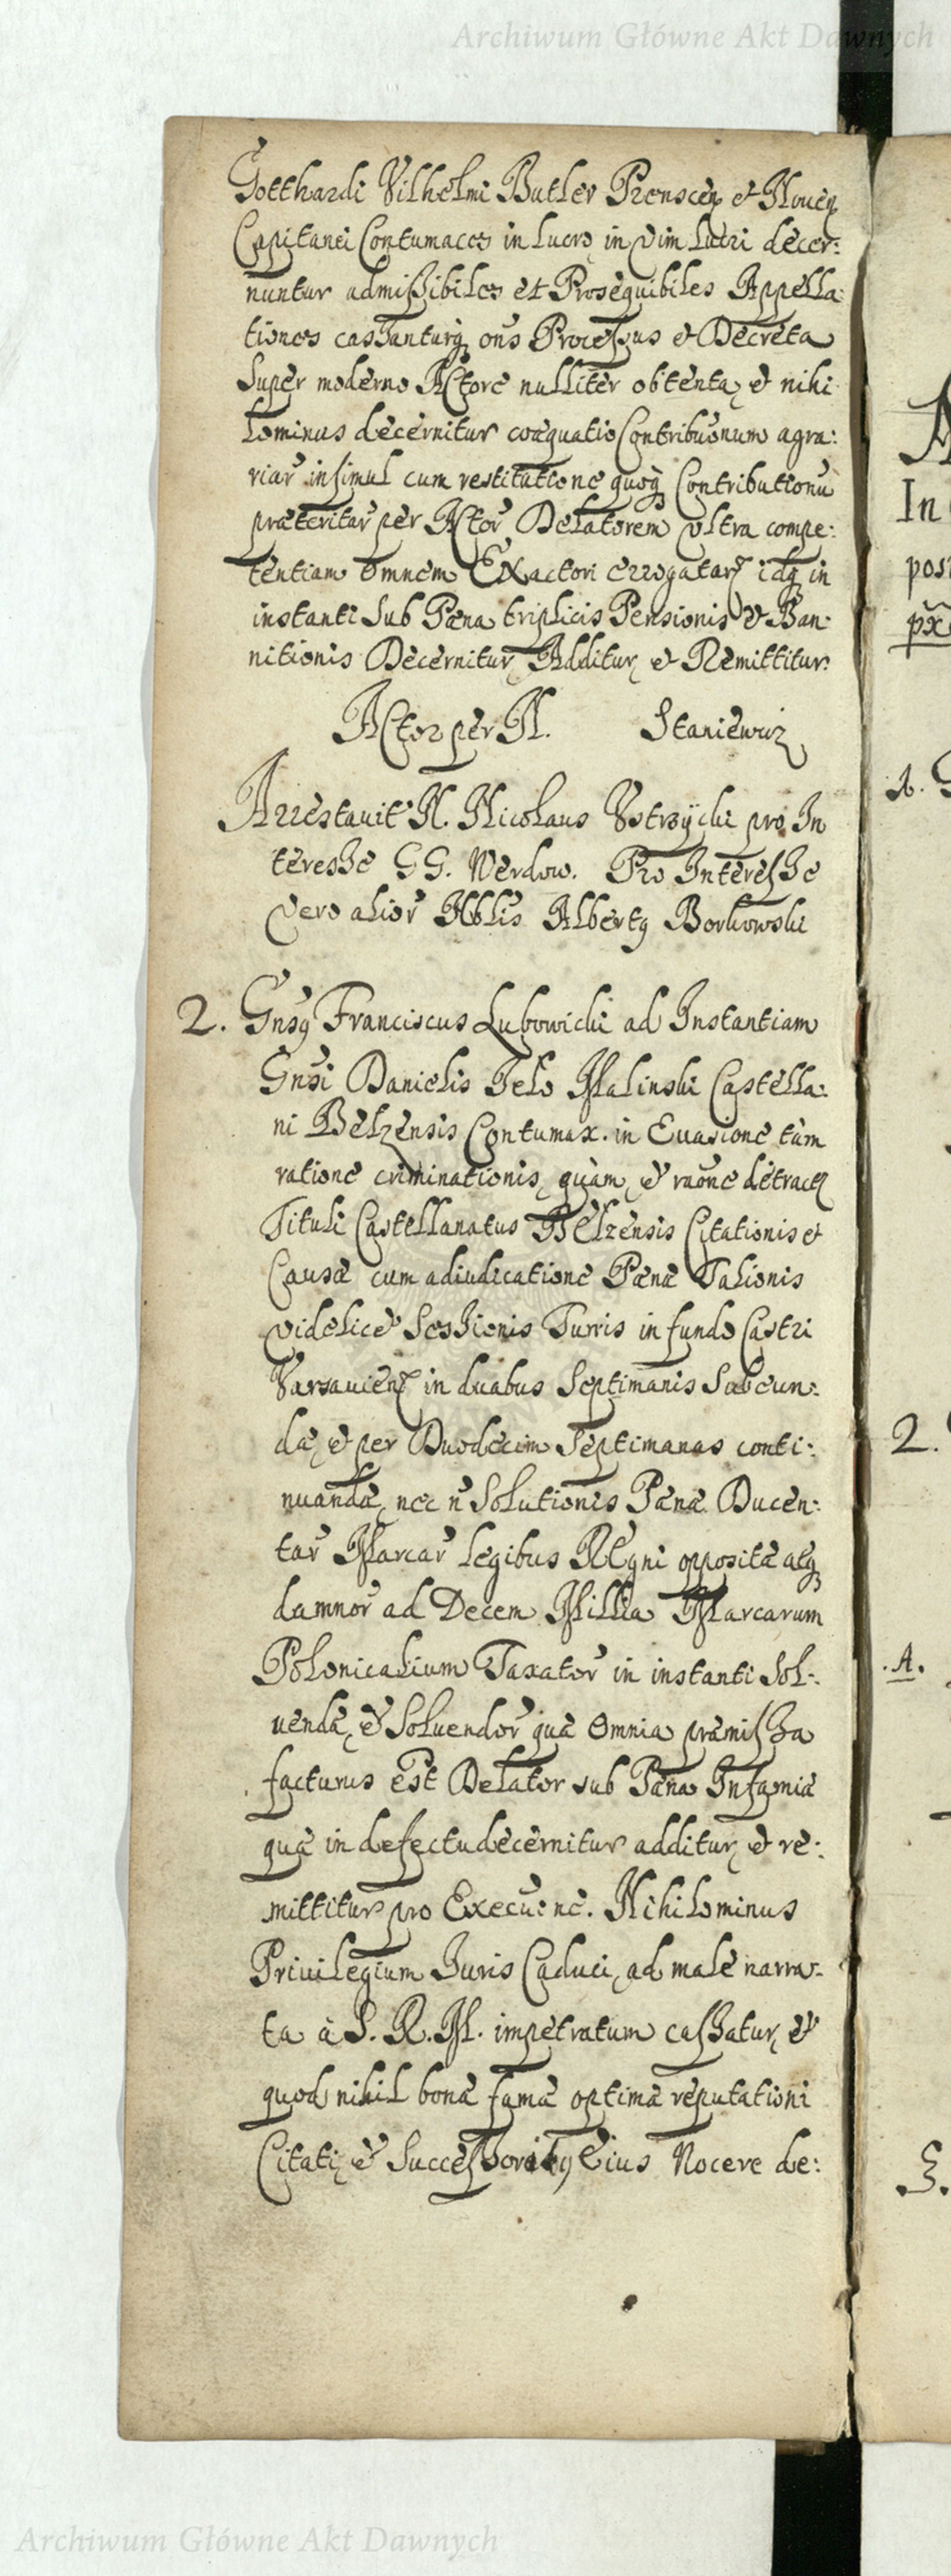 Archiwum Główne Akt Dawnych
Gotthardi Vilhelmi Butler Prenscen et Noven
Capitanei Contumaces in lucro in vim lucri decer:
nuntur admissibiles et Prosequibiles Appella:
tiones cassanturq ons Processus et Decreta
Super moderno Actore nulliter obtenta, et nihi
lominus decernitur coæquatio Contribuonum agra:
riar insimul cum restitutione quoq Contributionu
præteritar per Actor Delatorem ultra compe:
tentiam omnem Exactori errogatar idq in
instanti Sub Pœna triplicis Pensionis et Ban:
nitionis Decernitur, Additur, et Remittitur.
Actor per N. Staniewicz
Arrestavit N. Nicolaus Ustrzycki pro In
teresse GG. Werdow. Pro Interesse
vero alior Nblis Albertq Borkowski
2. Gnsq Franciscus Lubowicki ad Instantiam
Gnsi Danielis Jelo Malinski Castella:
ni Belzensis Contumax. in Evasione tàm
ratione criminationis, quàm, et raone detracti
Tituli Castellanatus Belzensis Citationis et
Causæ cum adiudicatione Pænæ Talionis
videlicet Sessionis Turris in fundo Castri
Varsavien in duabus Septimanis Subeun:
dæ, et per Duodecim Septimanas conti:
nuandæ, nec n Solutionis Pænæ Ducen:
tar Marcar legibus Regni oppositæ atq
damnor ad Decem Millia Marcarum
Polonicalium Taxator in instanti Sol:
vendæ, et Solvendor quæ Omnia præmissa
facturus est Delator sub Pæna Infamiæ
quæ in defectu decernitur additur, et re:
mittitur pro Execuone. Nihilominus
Privilegium Iuris Caduci, ad male narra:
ta à S. R. M. impetratum cassatur, et
quod nihil bonæ famæ optimæ reputationi
Citati, et Successoribq Eius Nocere de:
In
post
A.
2.
A.
3.
Archiwum Główne Akt Dawnych